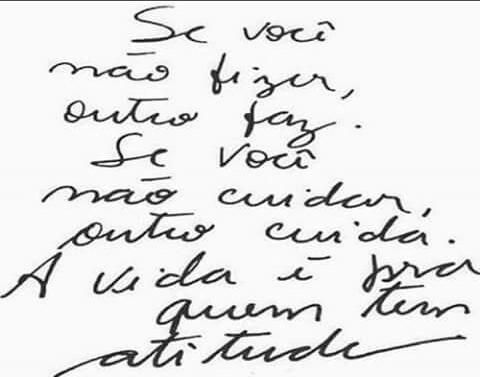 Se você
não fizer,
outro faz.
Se você
não cuidar,
outro cuida.
A vida é pra
quem tem
atitude